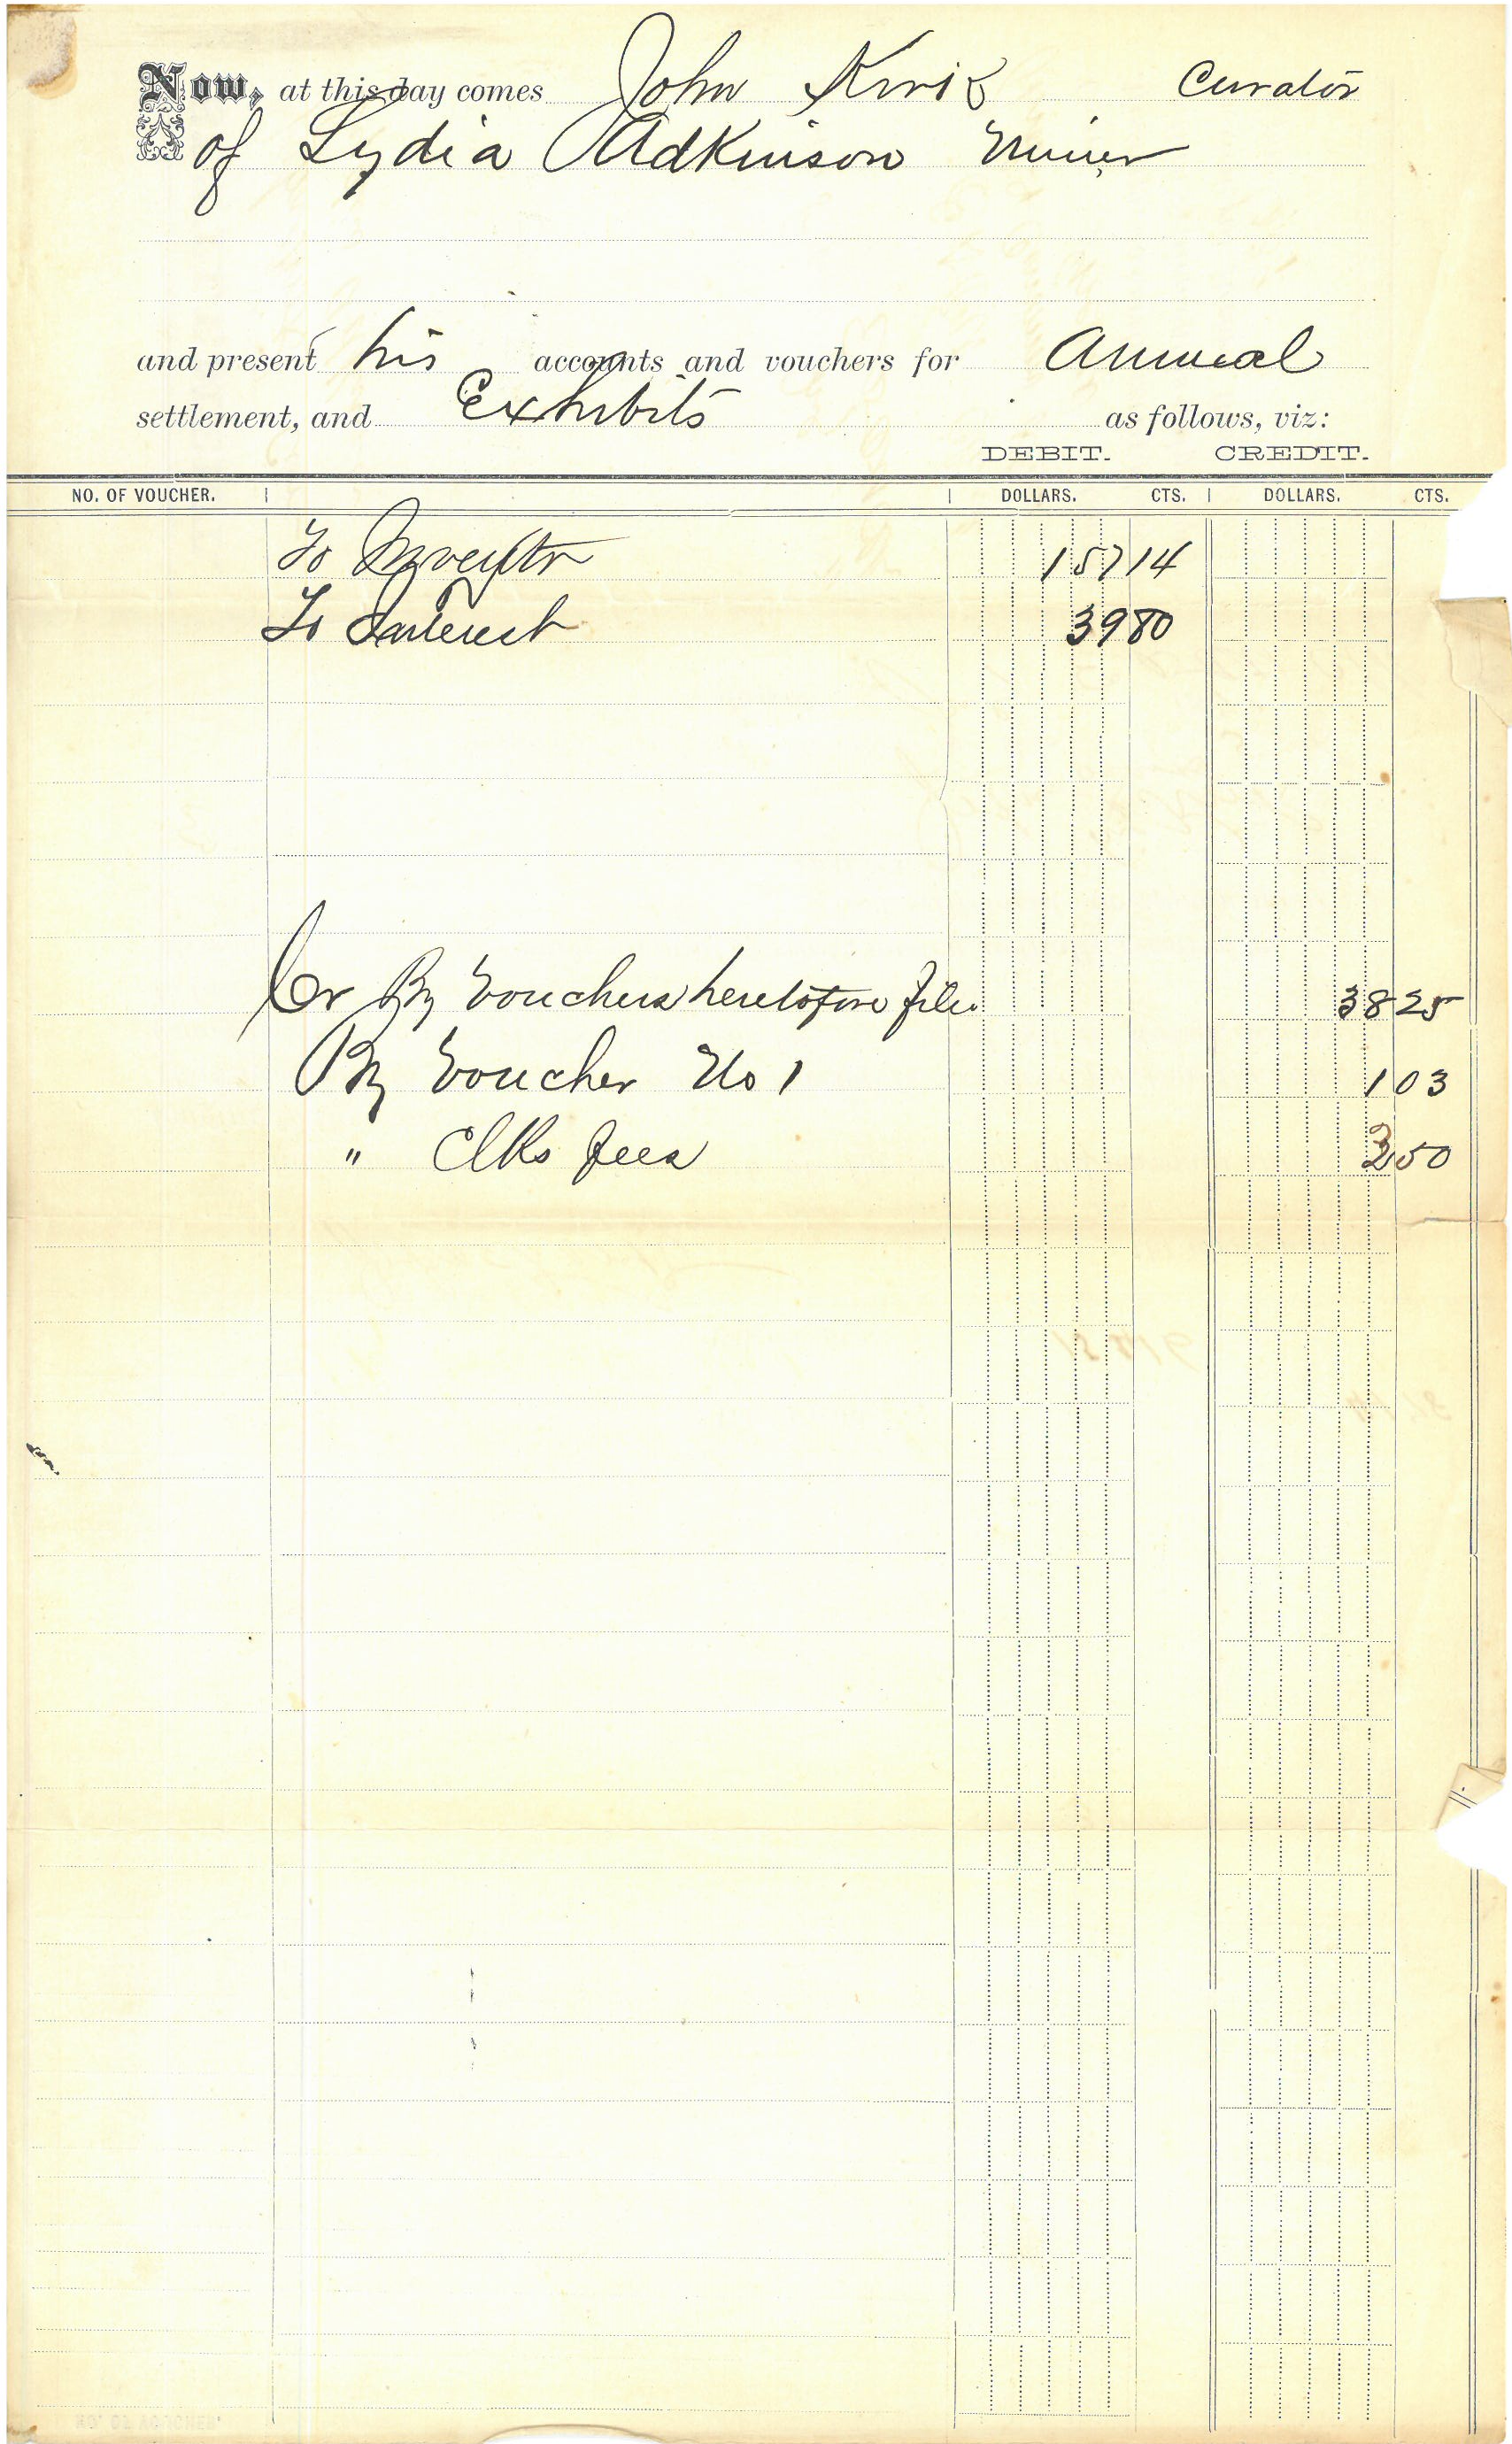 Now, at this day comes John Kirik Curator
of Lydia Adkinson Minor
and present his accounts and vouchers for Annual
settlement, and Exhibits as follows, viz:
DEBIT. CREDIT.
NO. OF VOUCHER. DOLLARS. CTS. DOLLARS. CTS.
To Inventr 157 14
To Interest 39 80
Cr By Vouchers heretofore file 38 25
By Voucher No 1 1 03
" Clks fees 50